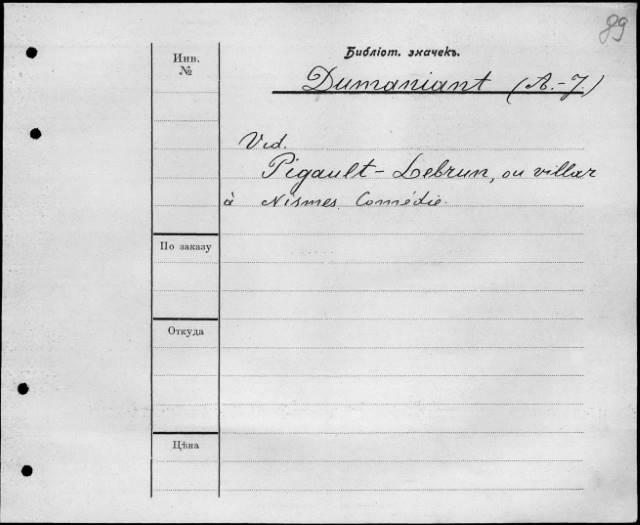 89
Инв.
№
Библіот. значекъ.
Dumaniant (A.-J.)
Vid.
Pigault-Lebrun, ou villar
à Nismes Comédie.
По заказу
Откуда
Цѣна